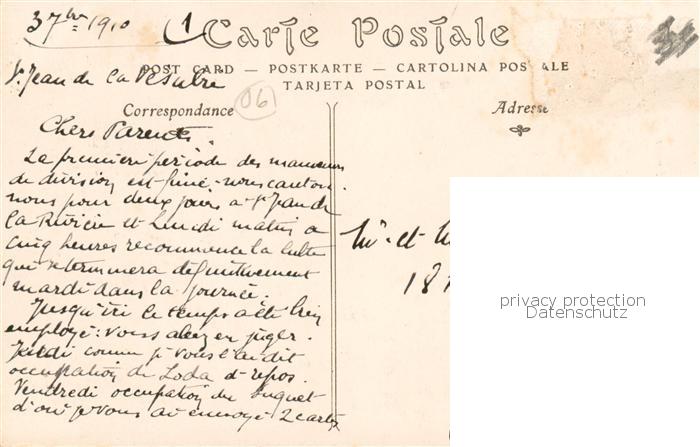 3 7bre 1910 1
St Jean de la
Carte Postale
POST CARD — POSTKARTE — CARTOLINA POSTALE
TARJETA POSTAL
Correspondance
06
Adresse
Chers Parents.
La première periode des manœuvres
de division est finie. nous canton-
nons pour deux jours a St Jean de
la Rivière et Lundi matin a
cinq heures recommence la lutte
qui se terminera définitivement
mardi dans la journée.
Jusqu'ici le temps a été bien
employé: vous allez en juger.
Jeudi comme je vous l'ai dit
occupation de Loda et repos.
Vendredi occupation du
d'où je vous ai envoyé 2 cartes
Mr et
18
privacy protection
Datenschutz